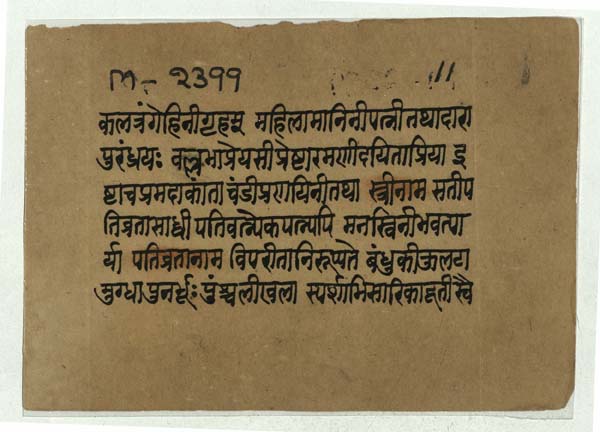 M - 2399
11
कलत्रंगेहिनीगृहम् महिलामानिनीपत्नीतथादारा
पुरंध्रयः वल्लभाप्रेयसीप्रेष्टारमणीदयिताप्रिया इ
ष्टाचप्रमदाकांताचंडीप्रणयिनीतथा स्त्रीनाम सतीप
तिव्रतासाध्वी पतिवत्न्येकपत्न्यपि मनस्विनीभवत्या
र्या पतिव्रतानाम विपरीतानिरूप्यते बंधुकीकुलटा
मुग्धापुनर्भूः पुंश्चलीखला स्पर्शाभिसारिकादूतीस्वै